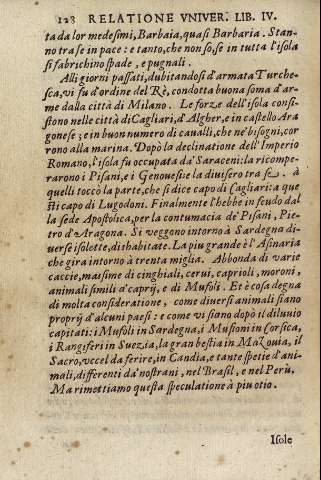 123 RELATIONE VNIVER. LIB. IV.
ta da lor medesimi, Barbaia, quasi Barbaria. Stan-
no tra se in pace: e tanto, che non so, se in tutta l'isola
si fabrichino spade, e pugnali.
Alli giorni passati, dubitandosi d'armata Turche-
sca, vi fu d'ordine del Rè, condotta buona soma d'ar-
me dalla città di Milano. Le forze dell'isola consi-
stono nelle città di Cagliari, d'Algher, e in castello Ara
gonese; e in buon numero di caualli, che ne' bisogni, cor
rono alla marina. Dopò la declinatione dell'Imperio
Romano, l'isola fu occupata da' Saraceni: la ricompe-
rarono i Pisani, e i Genouesi: e la diuisero tra se. à
quelli toccò la parte, che si dice capo di Cagliari: à que
sti capo di Lugodoni. Finalmente l'hebbe in feudo dal
la sede Apostolica, per la contumacia de' Pisani, Pie
tro d'Aragona. Si veggono intorno à Sardegna di-
uerse isolette, dishabitate. La piu grande è l'Asinaria
che gira intorno à trenta miglia. Abbonda di varie
caccie, massime di cinghiali, cerui, caprioli, moroni,
animali simili a' caprij, e di Mufoli. Et è cosa degna
di molta consideratione, come diuersi animali siano
proprij d'alcuni paesi: e come vi siano dopò il diluuio
capitati: i Mufoli in Sardegna, i Mufioni in Corsica,
i Rangiferi in Suezia, la gran bestia in Mazouia, il
Sacro, vccel da ferire, in Candia, e tante spetie d'ani-
mali, differenti da' nostrani, nel Brasil, e nel Perù.
Ma rimettiamo questa speculatione à piu otio.
Isole